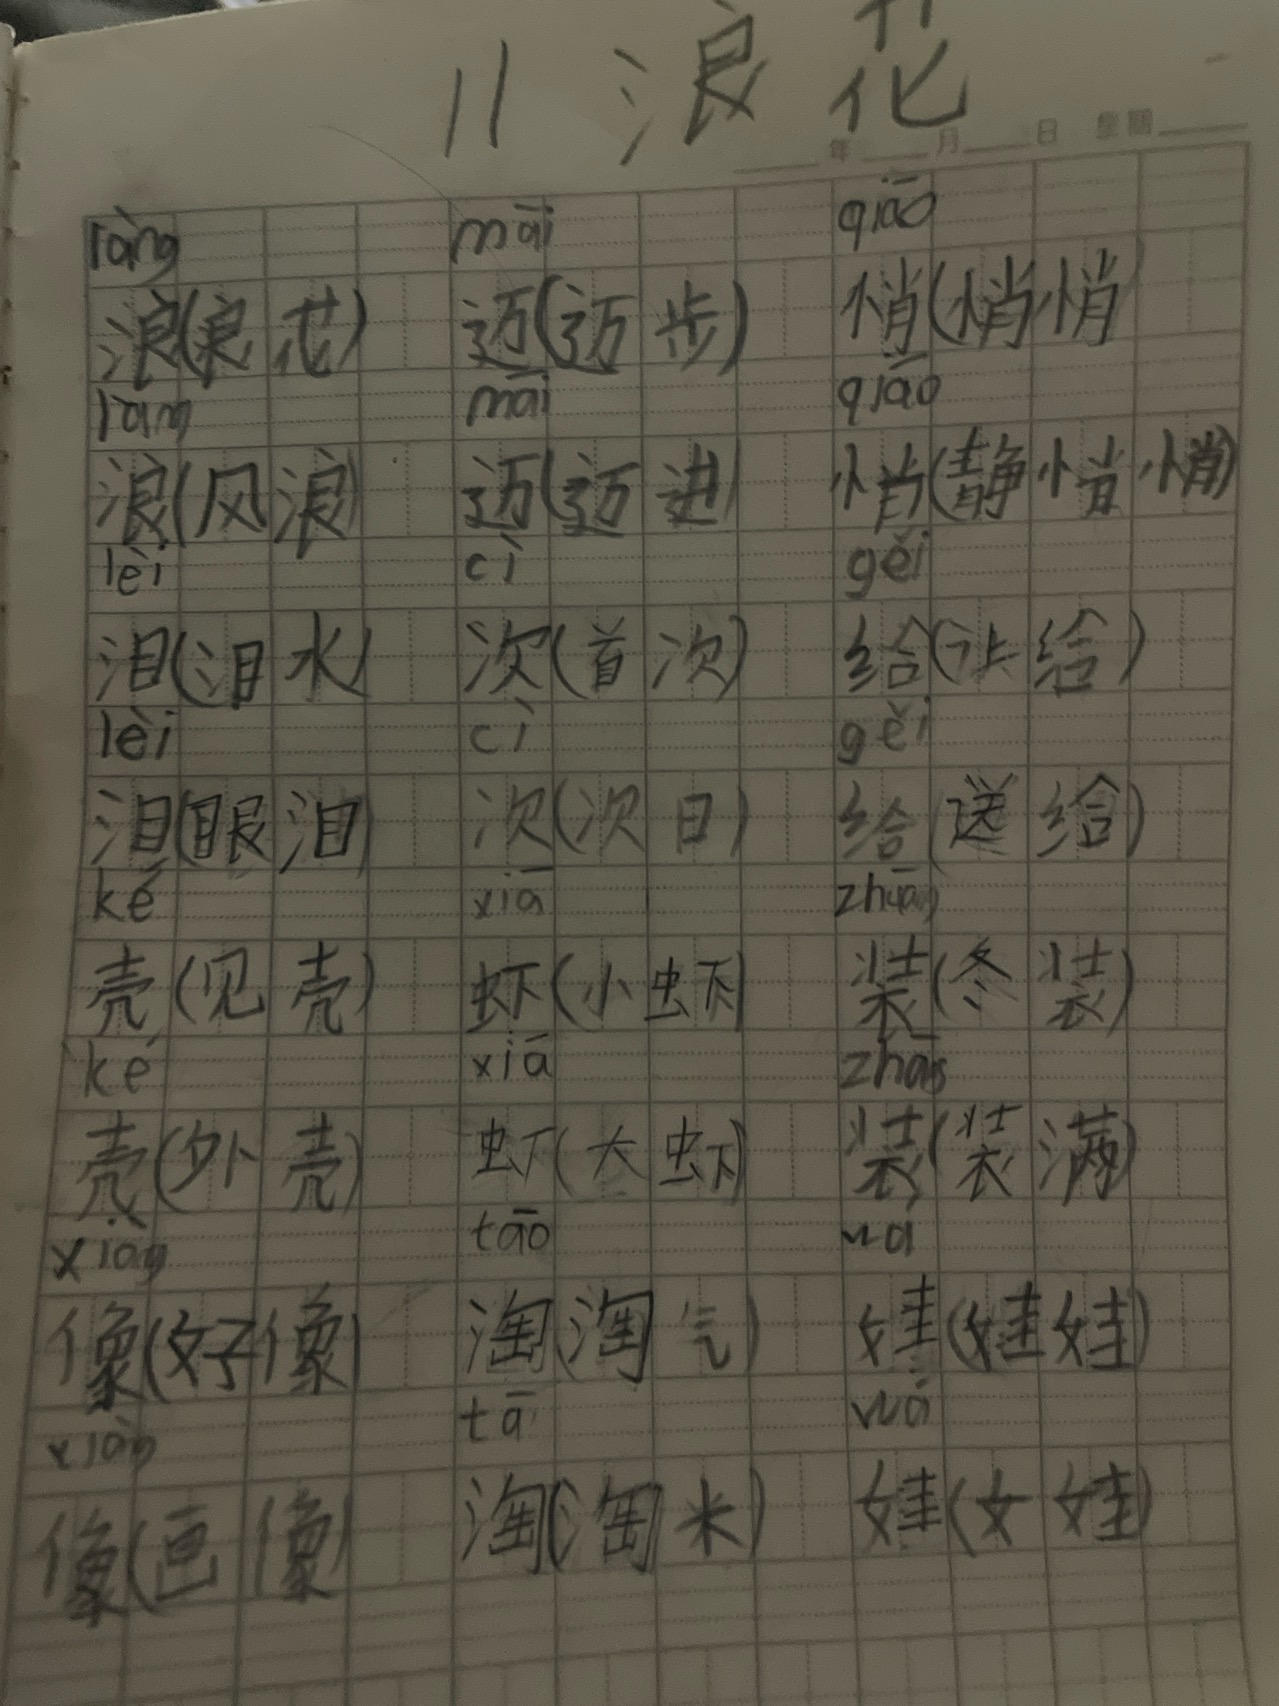 11 浪花
年 月 日 星期
làng māi qiāo
浪(浪花) 迈(迈步) 悄(悄悄)
làng māi qiāo
浪(风浪) 迈(迈进) 悄(静悄悄)
lèi cì gěi
泪(泪水) 次(首次) 给(让给)
lèi cì gěi
泪(眼泪) 次(次日) 给(送给)
ké xiā zhuāng
壳(贝壳) 虾(小虾) 装(冬装)
ké xiā
壳(外壳) 虾(大虾) 装(装满)
xiàng tāo wá
像(好像) 淘(淘气) 娃(娃娃)
tā wá
像(画像) 淘(淘米) 娃(女娃)